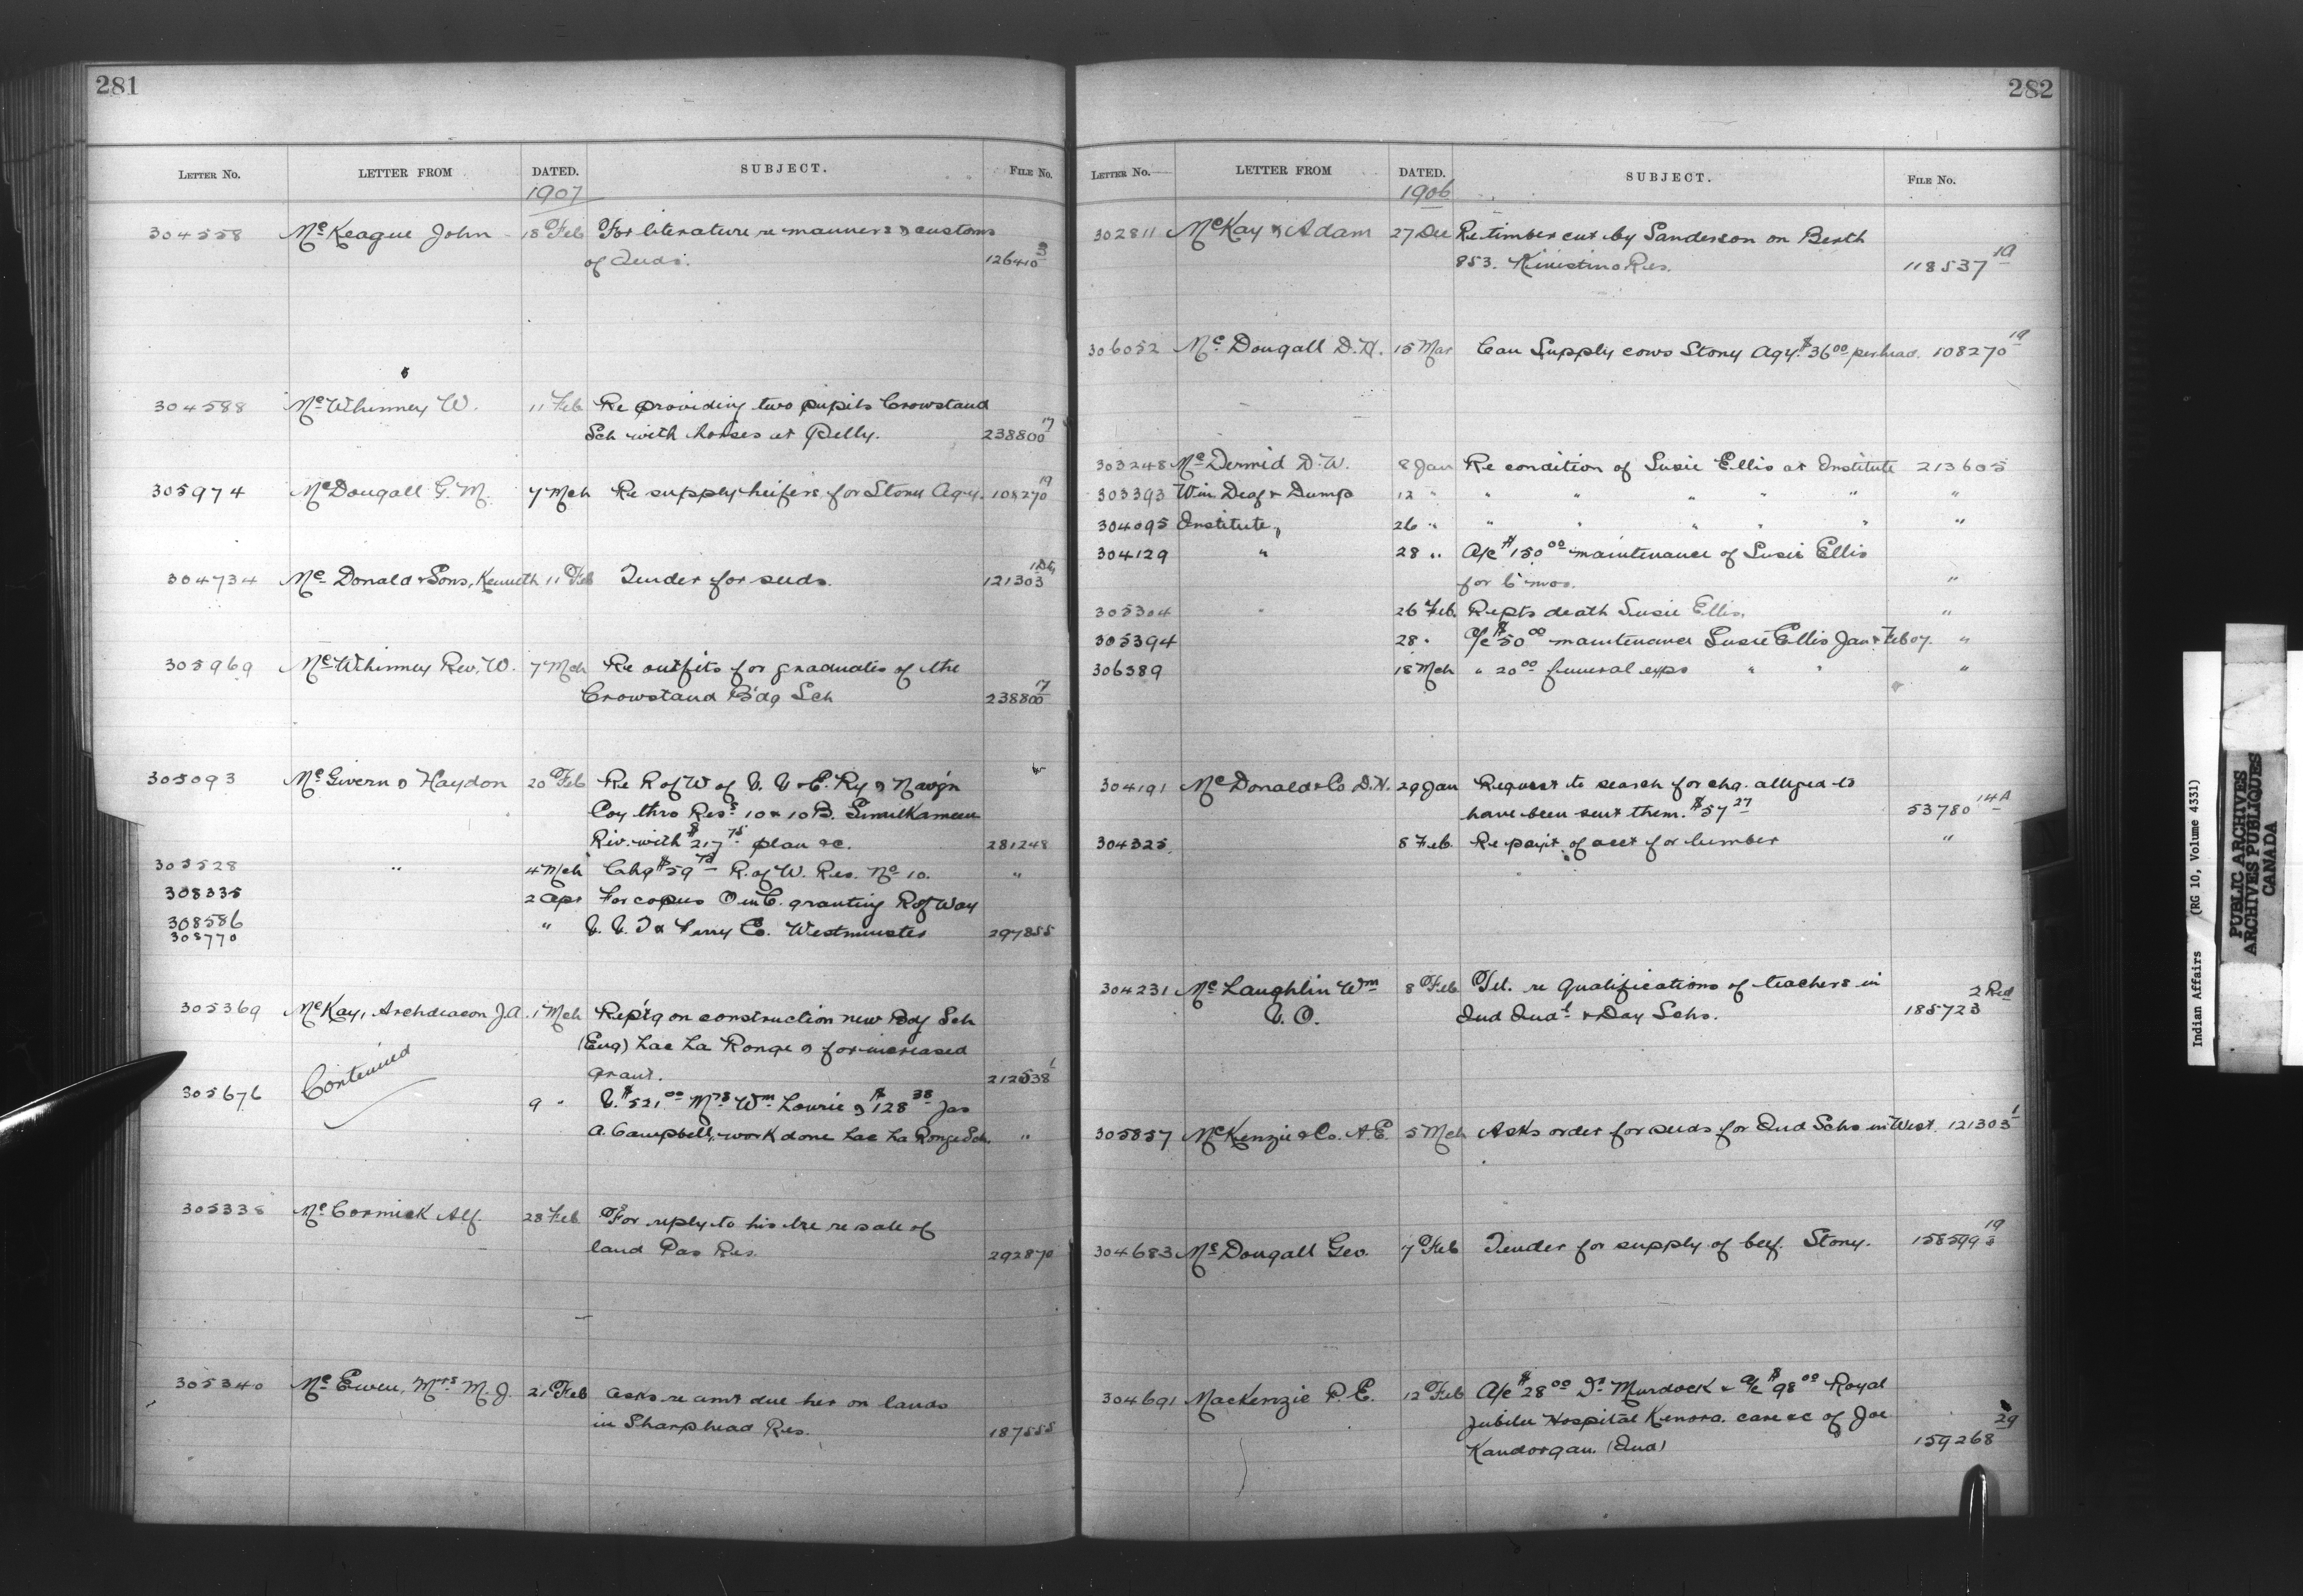 281
LETTER NO. LETTER FROM DATED. SUBJECT. FILE NO.
1907
304558 McKeague John 18 Feb For literature re manners & customs
of Inds. 126410 3
304588 McWhinney W. 11 Feb Re providing two pupils Crowstand
Sch with horses at Pelly. 238800 17
305974 McDougall G. M. 7 Mch Re supply heifers for Stony Agy. 108270 19
304734 McDonald & Sons, Kenneth 11 Feb Tender for seeds. 121303
305969 McWhinney Rev. W. 7 Mch Re outfits for graduates of the
Crowstand Bdg Sch 238800 17
305093 McGivern & Haydon 20 Feb Re R of W of V. V. & E. Ry & Navg'n
Coy thro Res. 10 & 10 B. Similkameen
Riv. with $217 75 plan &c. 281248
305528 " 4 Mch Chq $59 R. of W. Res. No 10. "
308335 2 Apr For copies O in C. granting R of Way
308586 " V. V. I & Ferry Co. Westminster 297855
308770
305369 McKay, Archdeacon J. A. 1 Mch Rep'tg on construction new Bdg Sch
(Eng) Lac La Ronge & for increased
grant. 212538 1
Contenued
305676 9 " V. $521 00 Mrs Wm Lowrie & $128 38 Jas
A. Campbell, work done Lac La Ronge Sch. "
305338 McCormick Alf. 28 Feb For reply to his ltre re sale of
land Pas Res. 292870
305340 McEwen, Mrs M. J. 21 Feb Asks re amt due her on lands
in Sharphead Res. 187555
282
LETTER NO. LETTER FROM DATED. SUBJECT. FILE NO.
1906
302811 McKay & Adam 27 Dec Re timber cut by Sanderson on Berth
853. Kinistino Res. 118537 19
306052 McDougall D. H. 15 Mar Can Supply cows Stony Agy. $36 00 per head. 108270 19
303248 McDermid D. W. 8 Jan Re condition of Susie Ellis at Institute 213605
303393 Win. Deaf & Dump 12 " " " " " " "
304095 Institute, 26 " " " " " " "
304129 " 28 " A/c $150 00 maintenance of Susie Ellis
for 6 mos. "
305304 26 Feb. Repts death Susie Ellis. "
305394 28 " A/c $50 00 maintenance Susie Ellis Jan & Feb 07. "
306389 18 Mch " 20 00 funeral exps " " "
304191 McDonald & Co D. H. 29 Jan Request to search for chq. alleged to
have been sent them. $57 27 53780 14A
304325 8 Feb. Re payt. of acct for lumber "
304231 McLaughlin Wm 8 Feb Tel. re qualifications of teachers in
V. O. Ind Indt. & Day Schs. 185723 2 Red
305857 McKenzie & Co. A. E. 5 Mch Asks order for seeds for Ind Schs in West. 121303 1
304683 McDougall Geo. 7 Feb Tender for supply of beef. Stony. 158599 19
304691 MacKenzie R. E. 12 Feb A/c $28 00 Dr. Murdock & a/c $98 00 Royal
Jubilee Hospital Kenora. care &c of Joe
Kandorgan. (Ind) 159268 29
Indian Affairs (RG 10, Volume 4331)
PUBLIC ARCHIVES
ARCHIVES PUBLIQUES
CANADA